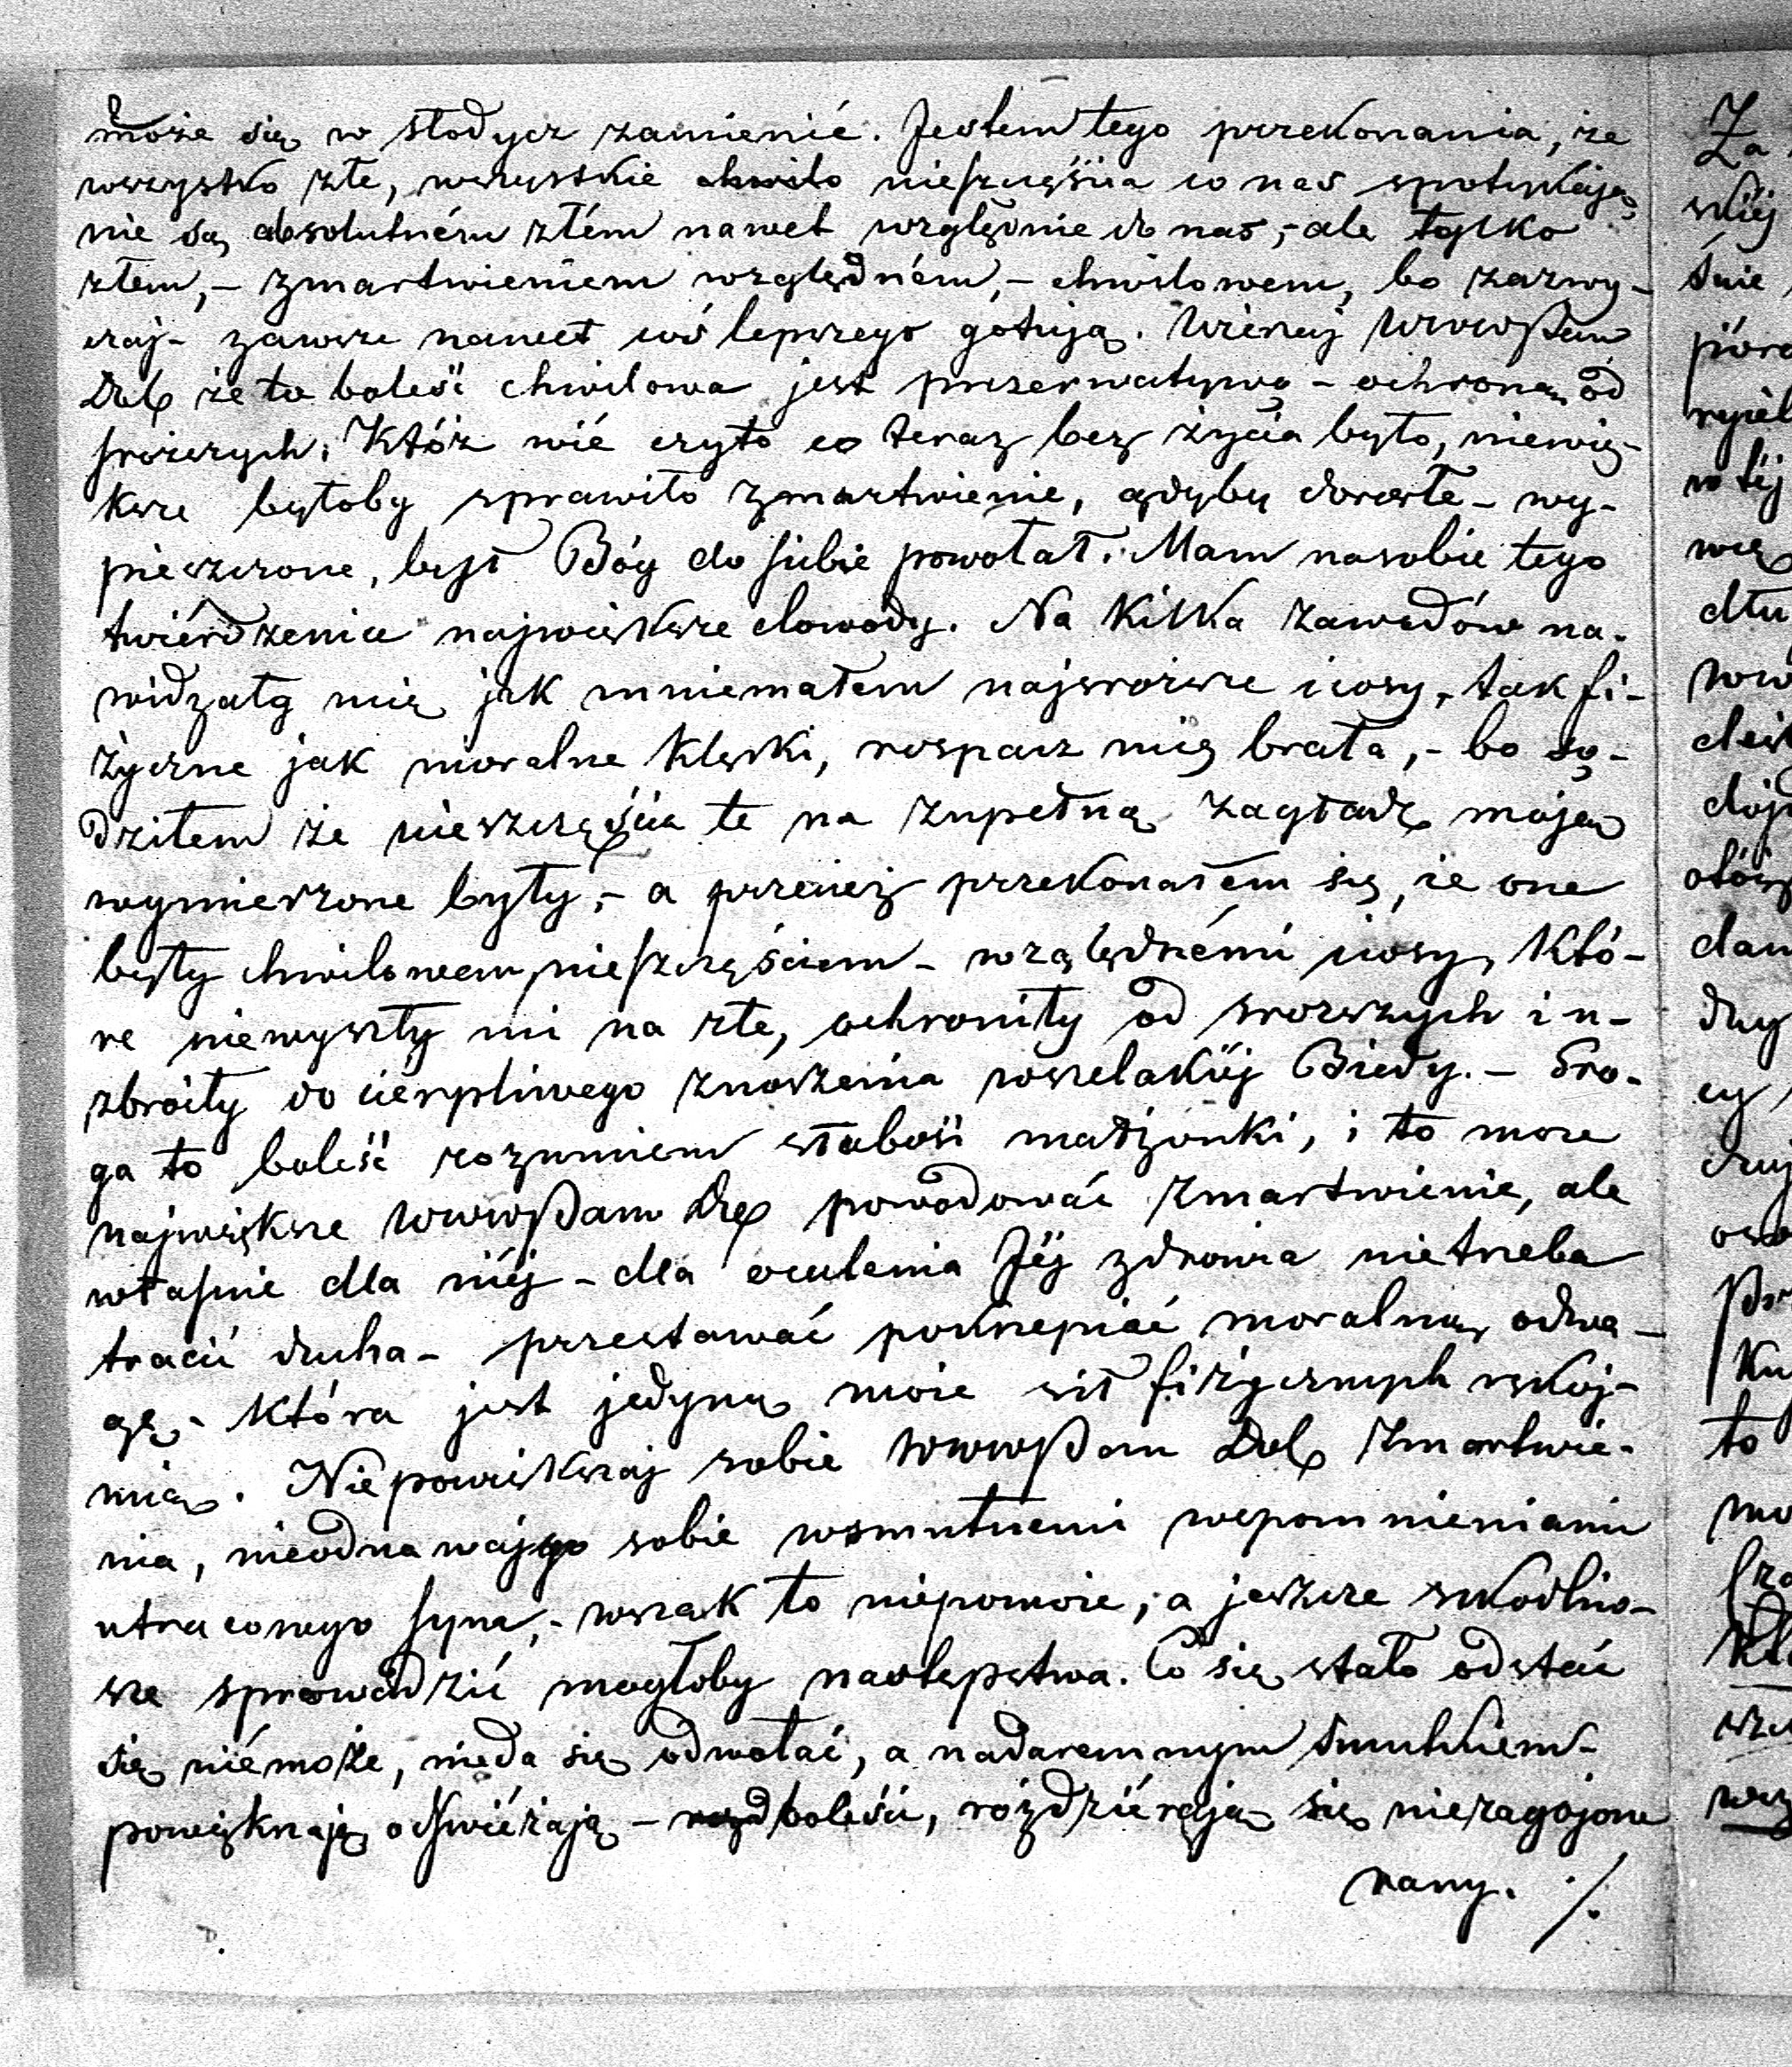 może się w słodycz zamienić. Jestem tego przekonania, że
wszystko złe, wszystkie nieszczęścia co nas spotykają
nie są absolutném złém nawet względnie do nas, - ale tylko
złem, - zmartwieniem względném, - chwilowem, bo zazwy-
czaj - zawsze nawet coś lepszego gotują. Wierzaj WwwPan
Dob że ta boleść chwilowa jest prezerwatywą - ochroną od
sroższych. Któż wié czyto co teraz bez życia było, niewię-
ksze byłoby sprawiło zmartwienie, gdyby dorosłe - wy-
pieszczone, był Bóg do siebie powołał. Mam nasobie tego
twiérdzenia największe dowody. Na kilka zawodów na-
widzały mię jak mniemałem najsroższe ciosy, tak fi-
życzne jak moralne klęski, rospacz mię brała, - bo są-
dziłem że nieszczęścia te na zupełną zagładę moją
wymierzone były, - a przeież przekonałem się, że one
były chwilowem nieszczęściem - względnémi ciosy, któ-
re niewyszły mi na złe, ochroniły od sroższych i u-
zbroiły do cierpliwego znoszenia wszelakiéj Biedy. - Sro-
ga to boleść rozumiem słabość małżonki, i to może
największe WwwPanu Dob powodować zmartwienie, ale
właśnie dla niéj - dla ocalenia Jéj zdrowia nietrzeba
tracić ducha - przestawać pokrzepiać moralną odwa-
gę - która jest jedyną może sił fizycznych rękoj-
mią. Niepowiększaj sobie WwwPan Dob zmartwie-
nia, nieodnawiaj go sobie wsmutnemi wspomnieniami
utraconego syna, - wszak to niepomoże, a jeszcze szkodliw-
sze sprowadzić mogłoby następstwa. Co się stało odstać
się niémoże, nieda się odwołać, a nadaremnym smutkiem -
powiększają odświéżają - boleści, rozdziérają się niezagojone
rany. ./.